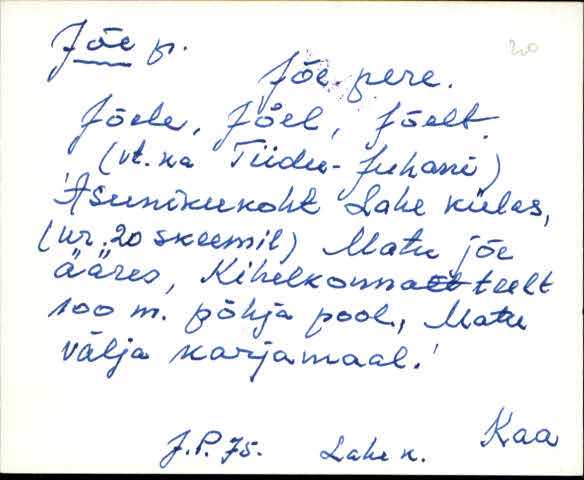 Jõe p.
20
Jõe pere.
Jõele, Jõel, Jõelt.
(vt. ka Tiidu-Juhani)
'Asunikukoht Lahe külas,
(nr. 20 skeemil) Matu jõe
ääres, Kihelkonna teelt
100 m. põhja pool, Matu
välja karjamaal.'
Kaa
J.P. 75. Lahe k.